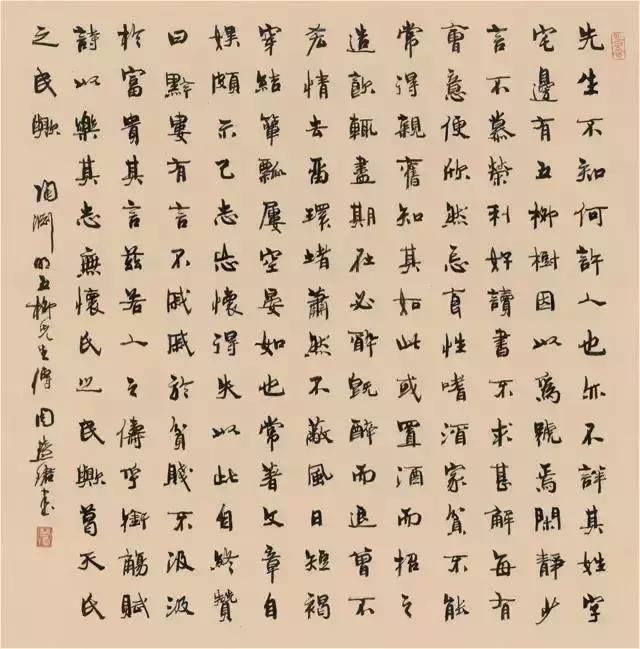 先生不知何許人也亦不詳其姓字
宅邊有五柳樹因以為號焉閑靜少
言不慕榮利好讀書不求甚解每有
會意便欣然忘食性嗜酒家貧不能
常得親舊知其如此或置酒而招之
造飲輒盡期在必醉既醉而退曾不
吝情去留環堵蕭然不蔽風日短褐
穿結簞瓢屢空晏如也常著文章自
娛頗示己志忘懷得失以此自終贊
曰黔婁有言不戚戚於貧賤不汲汲
於富貴其言茲若人之儔乎銜觴賦
詩以樂其志無懷氏之民歟葛天氏
之民歟
陶淵明五柳先生傳 周書